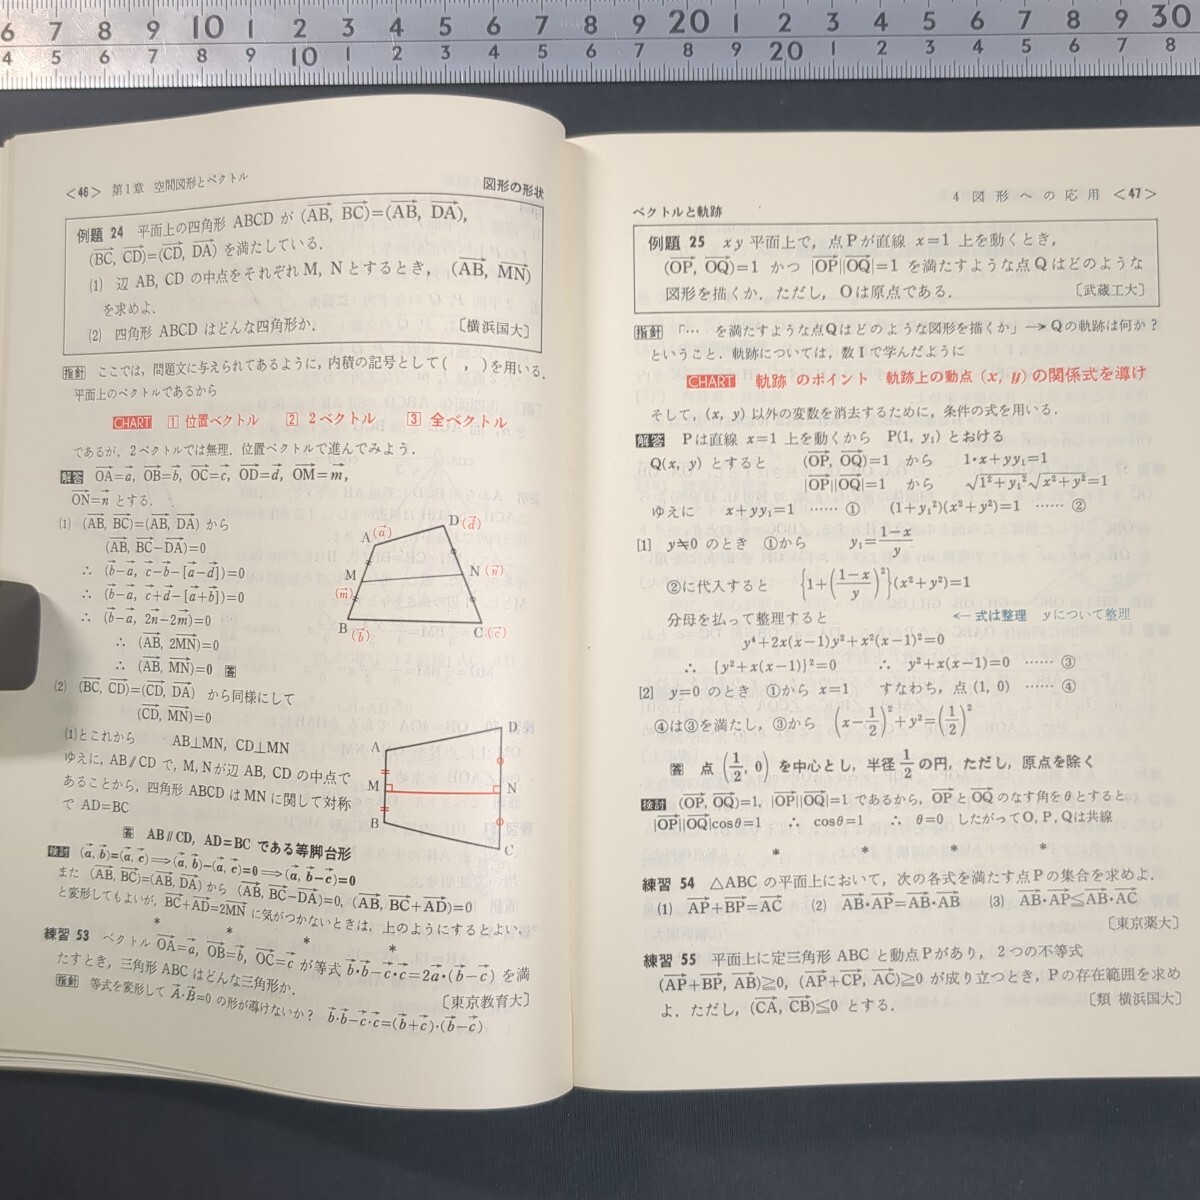 6 7 8 9 10 1 2 3 4 5 6 7 8 9 20 1 2 3 4 5 6 7 8 9 30
4 5 6 7 8 9 10 1 2 3 4 5 6 7 8 9 20 1 2 3 4 5 6 7 8
<46> 第1章 空間図形とベクトル
図形の形状
例題 24 平面上の四角形 ABCD が (\overrightarrow{AB}, \overrightarrow{BC})=(\overrightarrow{AB}, \overrightarrow{DA}),
(\overrightarrow{BC}, \overrightarrow{CD})=(\overrightarrow{CD}, \overrightarrow{DA}) を満たしている.
(1) 辺 AB, CD の中点をそれぞれ M, N とするとき, (\overrightarrow{AB}, \overrightarrow{MN})
を求めよ.
(2) 四角形 ABCD はどんな四角形か. 〔横浜国大〕
指針 ここでは, 問題文に与えられてあるように, 内積の記号として( , )を用いる.
平面上のベクトルであるから
CHART 1 位置ベクトル 2 2ベクトル 3 全ベクトル
であるが, 2ベクトルでは無理. 位置ベクトルで進んでみよう.
解答 \overrightarrow{OA}=\vec{a}, \overrightarrow{OB}=\vec{b}, \overrightarrow{OC}=\vec{c}, \overrightarrow{OD}=\vec{d}, \overrightarrow{OM}=\vec{m},
\overrightarrow{ON}=\vec{n} とする.
(1) (\overrightarrow{AB}, \overrightarrow{BC})=(\overrightarrow{AB}, \overrightarrow{DA}) から
(\overrightarrow{AB}, \overrightarrow{BC}-\overrightarrow{DA})=0
∴ (\vec{b}-\vec{a}, \vec{c}-\vec{b}-[\vec{a}-\vec{d}])=0
∴ (\vec{b}-\vec{a}, \vec{c}+\vec{d}-[\vec{a}+\vec{b}])=0
∴ (\vec{b}-\vec{a}, 2\vec{n}-2\vec{m})=0
∴ (\overrightarrow{AB}, 2\overrightarrow{MN})=0
∴ (\overrightarrow{AB}, \overrightarrow{MN})=0 答
A(\vec{a})
D(\vec{d})
M
(\vec{m})
N(\vec{n})
B(\vec{b})
C(\vec{c})
(2) (\overrightarrow{BC}, \overrightarrow{CD})=(\overrightarrow{CD}, \overrightarrow{DA}) から同様にして
(\overrightarrow{CD}, \overrightarrow{MN})=0
(1)とこれから AB⊥MN, CD⊥MN
ゆえに, AB∥CD で, M, N が辺 AB, CD の中点で
あることから, 四角形 ABCD は MN に関して対称
で AD=BC
答 AB∥CD, AD=BC である等脚台形
A
D
M
N
B
C
検討 (\vec{a}, \vec{b})=(\vec{a}, \vec{c})⟹(\vec{a}, \vec{b})-(\vec{a}, \vec{c})=0⟹(\vec{a}, \vec{b}-\vec{c})=0
また (\overrightarrow{AB}, \overrightarrow{BC})=(\overrightarrow{AB}, \overrightarrow{DA}) から (\overrightarrow{AB}, \overrightarrow{BC}-\overrightarrow{DA})=0, (\overrightarrow{AB}, \overrightarrow{BC}+\overrightarrow{AD})=0
と変形してもよいが, \overrightarrow{BC}+\overrightarrow{AD}=2\overrightarrow{MN} に気がつかないときは, 上のようにするとよい.
* * * *
練習 53 ベクトル \overrightarrow{OA}=\vec{a}, \overrightarrow{OB}=\vec{b}, \overrightarrow{OC}=\vec{c} が等式 \vec{b}・\vec{b}-\vec{c}・\vec{c}=2\vec{a}・(\vec{b}-\vec{c}) を満
たすとき, 三角形 ABC はどんな三角形か. 〔東京教育大〕
指針 等式を変形して \vec{A}・\vec{B}=0 の形が導けないか? \vec{b}・\vec{b}-\vec{c}・\vec{c}=(\vec{b}+\vec{c})・(\vec{b}-\vec{c})
4 図形への応用 <47>
ベクトルと軌跡
例題 25 xy 平面上で, 点Pが直線 x=1 上を動くとき,
(\overrightarrow{OP}, \overrightarrow{OQ})=1 かつ |\overrightarrow{OP}||\overrightarrow{OQ}|=1 を満たすような点Qはどのような
図形を描くか. ただし, Oは原点である. 〔武蔵工大〕
指針 「… を満たすような点Qはどのような図形を描くか」→Qの軌跡は何か?
ということ. 軌跡については, 数Iで学んだように
CHART 軌跡 のポイント 軌跡上の動点 (x, y) の関係式を導け
そして, (x, y) 以外の変数を消去するために, 条件の式を用いる.
解答 Pは直線 x=1 上を動くから P(1, y₁) とおける
Q(x, y) とすると (\overrightarrow{OP}, \overrightarrow{OQ})=1 から 1・x+yy₁=1
|\overrightarrow{OP}||\overrightarrow{OQ}|=1 から √(1²+y₁²)√(x²+y²)=1
ゆえに x+yy₁=1 …… ① (1+y₁²)(x²+y²)=1 …… ②
[1] y≒0 のとき ①から y₁=\frac{1-x}{y}
②に代入すると {1+(\frac{1-x}{y})²}(x²+y²)=1
分母を払って整理すると ←式は整理 yについて整理
y⁴+2x(x-1)y²+x²(x-1)²=0
∴ {y²+x(x-1)}²=0 ∴ y²+x(x-1)=0 …… ③
[2] y=0 のとき ①から x=1 すなわち, 点 (1, 0) …… ④
④は③を満たし, ③から (x-\frac{1}{2})²+y²=(\frac{1}{2})²
答 点 (\frac{1}{2}, 0) を中心とし, 半径 \frac{1}{2} の円, ただし, 原点を除く
検討 (\overrightarrow{OP}, \overrightarrow{OQ})=1, |\overrightarrow{OP}||\overrightarrow{OQ}|=1 であるから, \overrightarrow{OP} と \overrightarrow{OQ} のなす角を θ とすると
|\overrightarrow{OP}||\overrightarrow{OQ}|cosθ=1 ∴ cosθ=1 ∴ θ=0 したがってO, P, Qは共線
* * * *
練習 54 △ABC の平面上において, 次の各式を満たす点Pの集合を求めよ.
(1) \overrightarrow{AP}+\overrightarrow{BP}=\overrightarrow{AC} (2) \overrightarrow{AB}・\overrightarrow{AP}=\overrightarrow{AB}・\overrightarrow{AB} (3) \overrightarrow{AB}・\overrightarrow{AP}≦\overrightarrow{AB}・\overrightarrow{AC}
〔東京薬大〕
練習 55 平面上に定三角形 ABC と動点Pがあり, 2つの不等式
(\overrightarrow{AP}+\overrightarrow{BP}, \overrightarrow{AB})≧0, (\overrightarrow{AP}+\overrightarrow{CP}, \overrightarrow{AC})≧0 が成り立つとき, Pの存在範囲を求め
よ. ただし, (\overrightarrow{CA}, \overrightarrow{CB})≦0 とする. 〔類 横浜国大〕